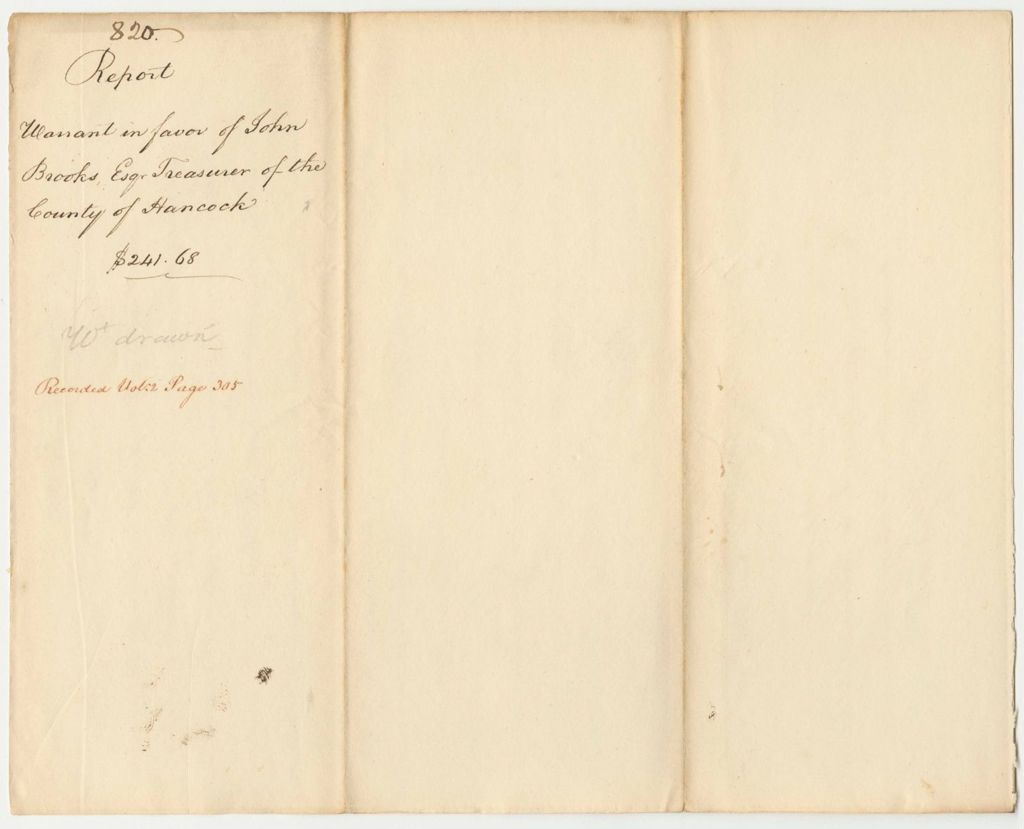 820.
Report
Warrant in favor of John
Brooks, Esqr. Treasurer of the
County of Hancock
$241.68
Wt drawn
Recorded Vol: 2 Page 305